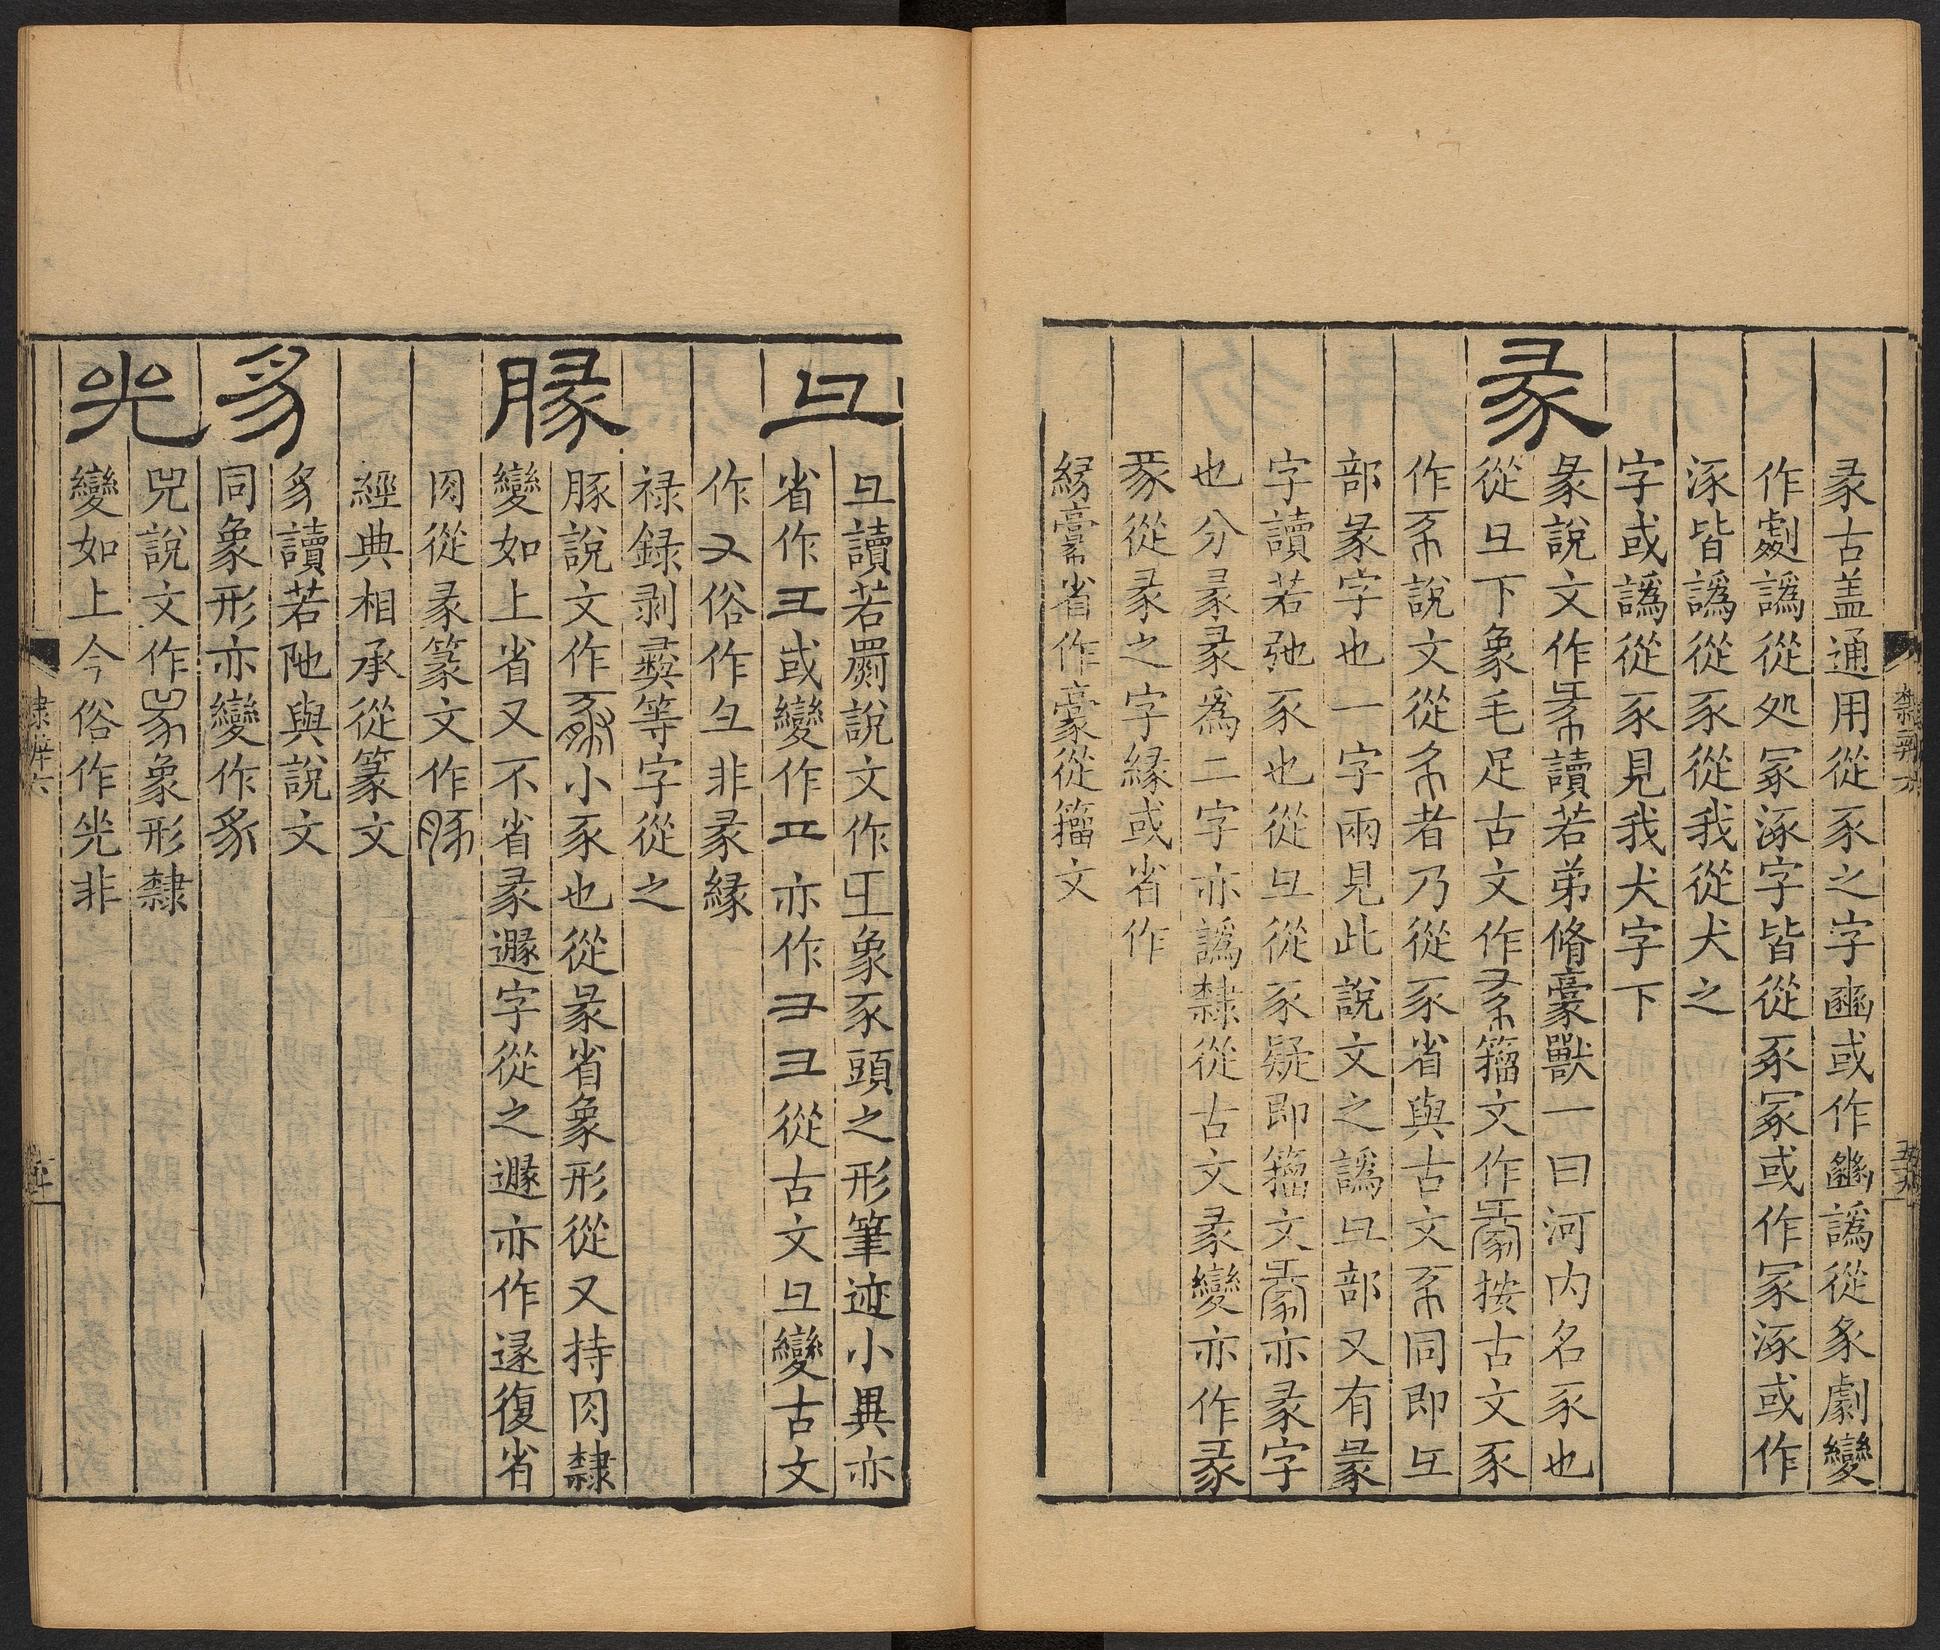 彖古盖通用從豕之字豳或作豳譌從象劇變
作劇譌從処冢涿字皆從豖冢或作冢涿或作
涿皆譌從豕從我從犬之
字或譌從豕見我犬字下
彖
彖說文作讀若弟脩豪獸一曰河内名豕也
從彑下象毛足古文作籀文作按古文豕
作說文從者乃從豕省與古文同即彑
部彖字也一字兩見此說文之譌彑部又有彖
字讀若弛豕也從彑從豕疑即籀文亦彖字
也分彖彖爲二字亦譌隸從古文彖變亦作彖
從彖之字緣或省作
省作豪從籀文
隸辨六
彑
彑讀若罽說文作象豕頭之形筆迹小異亦
省作彐或變作亦作彐彐從古文彑變古文
作俗作彑非彖緣
祿錄剥彛等字從之
豚
豚說文作小豕也從彖省象形從又持肉隸
變如上省又不省彖遯字從之遯亦作遂復省
肉從彖篆文作豚
經典相承從篆文
豸
豸讀若阤與說文
同象形亦變作豸
光
兕說文作象形隸
變如上今俗作非
隸辨六